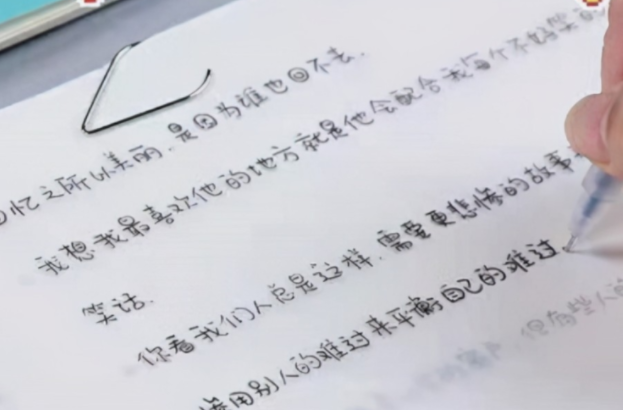 回忆之所以美丽.是因为谁也回不去.
我想我最喜欢他的地方就是他会配合我每个不好笑的
笑话.
你看我们人总是这样.需要更悲惨的故事
用别人的难过来平衡自己的难过.